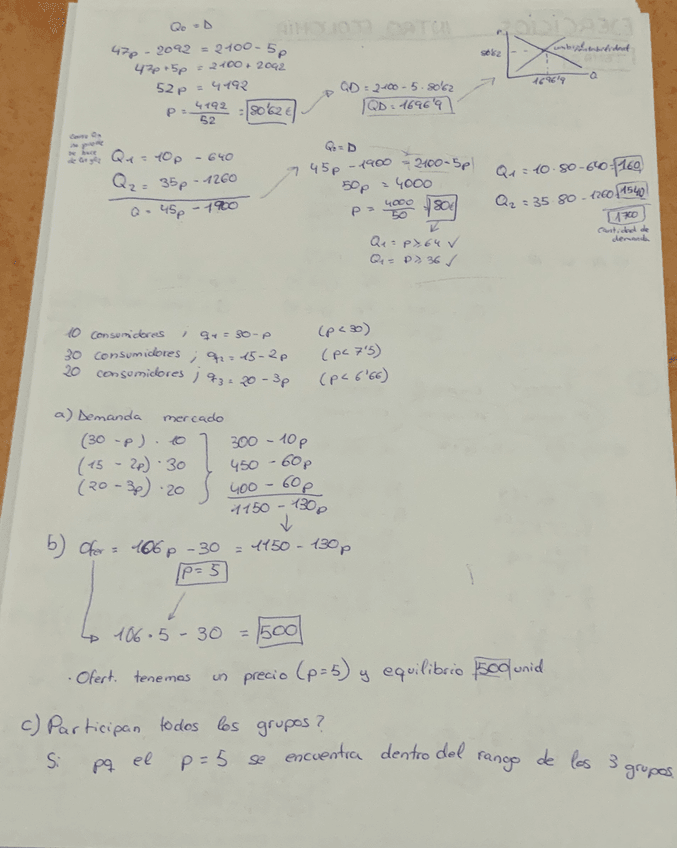 Qo = D
47p - 2092 = 2100 - 5p
47p + 5p = 2100 + 2092
52p = 4192
p = 4192/52 = 80'62€
QD = 2100 - 5 · 80'62
QD = 1696'9
P
80'62
1696'9
Q
Q1 = 10p - 640
Q2 = 35p - 1260
Q = 45p - 1900
Qo = D
45p - 1900 = 2100 - 5p
50p = 4000
p = 4000/50 = 80€
Q1 = p ≥ 64 ✓
Q1 = p ≥ 36 ✓
Q1 = 10 · 80 - 640 = 160
Q2 = 35 · 80 - 1260 = 1540
1700
Cantidad de
demanda
10 consumidores ; q1 = 30 - p (p < 30)
30 consumidores ; q2 = 15 - 2p (p < 7'5)
20 consumidores ; q3 = 20 - 3p (p < 6'66)
a) Demanda mercado
(30 - p) · 10 300 - 10p
(15 - 2p) · 30 450 - 60p
(20 - 3p) · 20 400 - 60p
1150 - 130p
b) Ofer = 106p - 30 = 1150 - 130p
p = 5
106 · 5 - 30 = 500
· Ofert. tenemos un precio (p = 5) y equilibrio 500 unid
c) Participan todos los grupos?
Si pq el p = 5 se encuentra dentro del rango de los 3 grupos